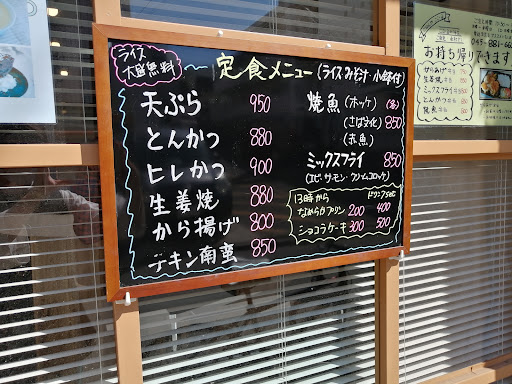 ライス
大盛無料
定食メニュー(ライスみそ汁小鉢付)
天ぷら 950
とんかつ 880
ヒレかつ 900
生姜焼 880
から揚げ 800
チキン南蛮 850
焼魚(ホッケ)
(さば文化) 850
(赤魚)
ミックスフライ 850
(エビ・サーモン・クリームコロッケ)
13時から ドリンクset
なめらかプリン 200 400
ショコラケーキ 300 500
お持ち帰りできます
からあげ弁当
生姜焼
ミックスフライ
とんかつ
焼魚